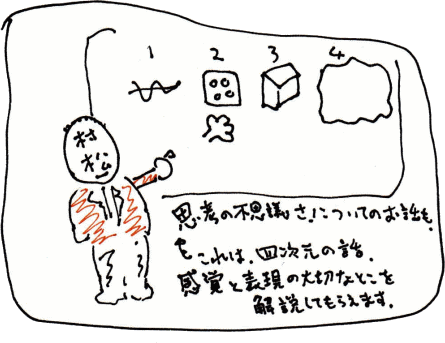 1 2 3 4
村
松
思考の不思議さについてのお話も。
これは、四次元の話。
感覚と表現の大切なとこを
解説してもらえます。